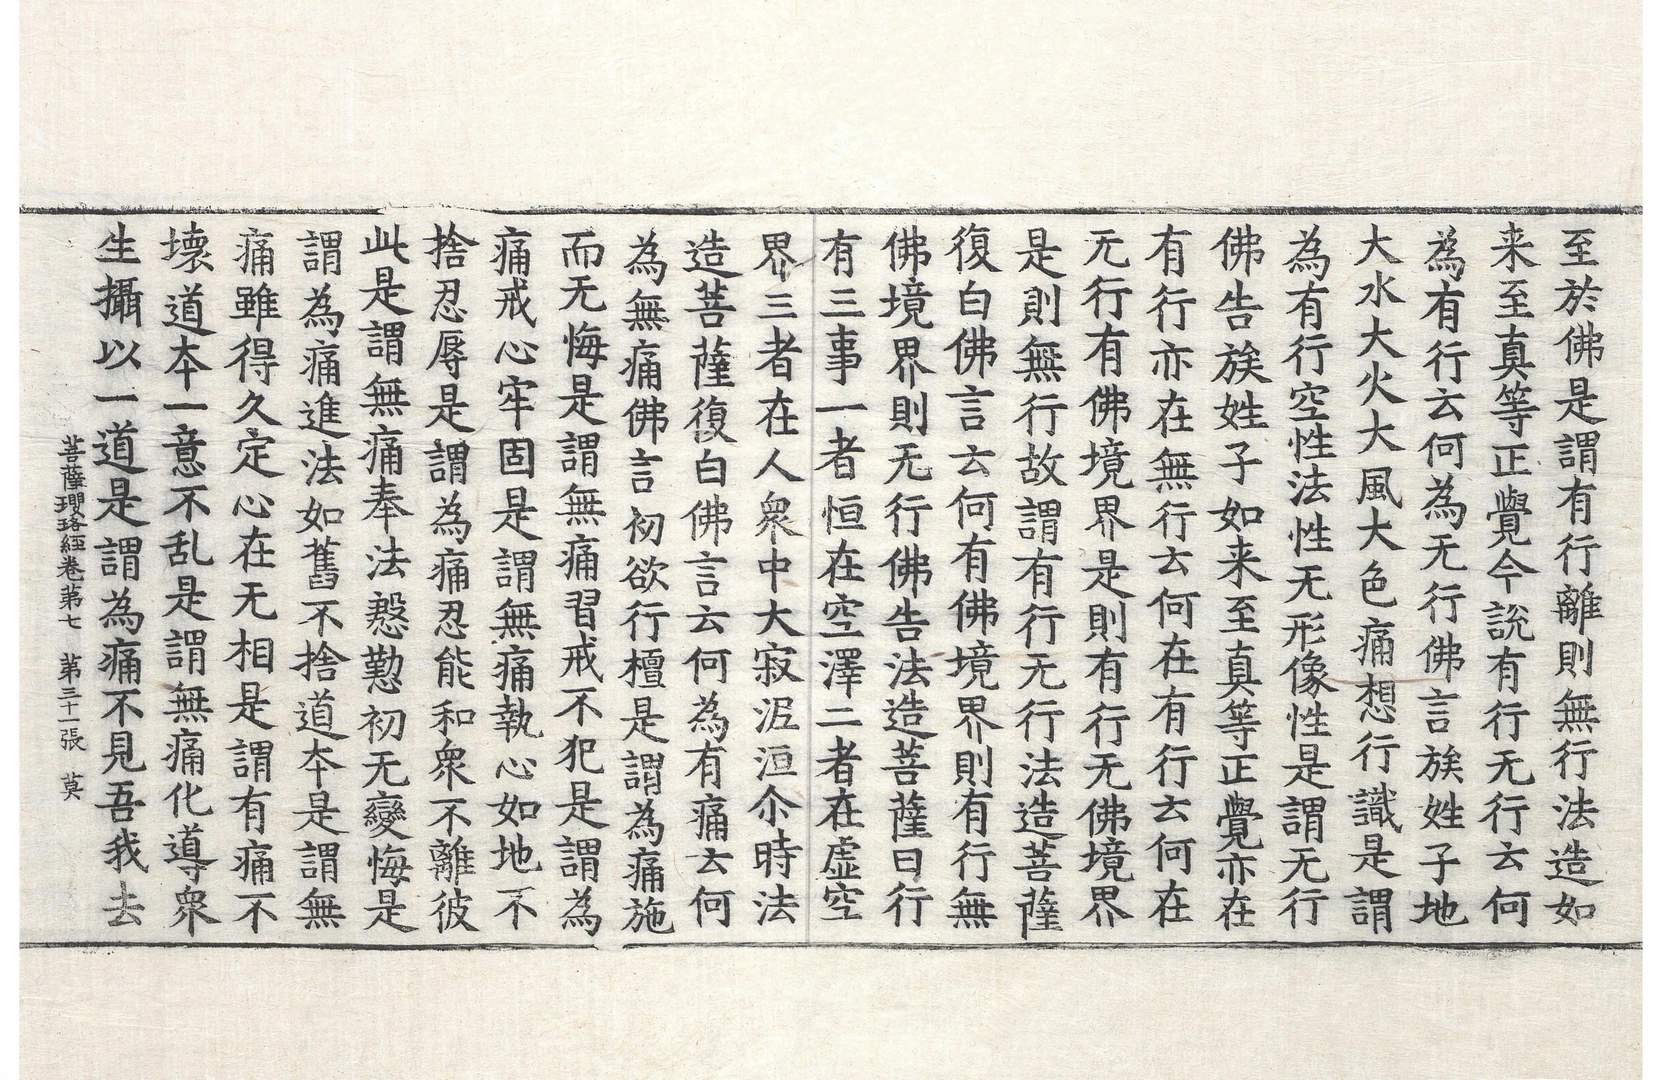 至於佛是謂有行離則無行法造如
来至真等正覺今說有行无行云何
為有行云何為无行佛言族姓子地
大水大火大風大色痛想行識是謂
為有行空性法性无形像性是謂无行
佛告族姓子如来至真等正覺亦在
有行亦在無行云何在有行云何在
无行有佛境界是則有行无佛境界
是則無行故謂有行无行法造菩薩
復白佛言云何有佛境界則有行無
佛境界則无行佛告法造菩薩曰行
有三事一者恒在空澤二者在虛空
界三者在人衆中大寂泥洹尒時法
造菩薩復白佛言云何為有痛云何
為無痛佛言初欲行檀是謂為痛施
而无悔是謂無痛習戒不犯是謂為
痛戒心牢固是謂無痛執心如地不
捨忍辱是謂為痛忍能和衆不離彼
此是謂無痛奉法慇懃初无變悔是
謂為痛進法如舊不捨道夲是謂無
痛雖得久定心在无相是謂有痛不
壞道夲一意不乱是謂無痛化導衆
生攝以一道是謂為痛不見吾我去
菩薩瓔珞經卷第七　第三十一張　莫